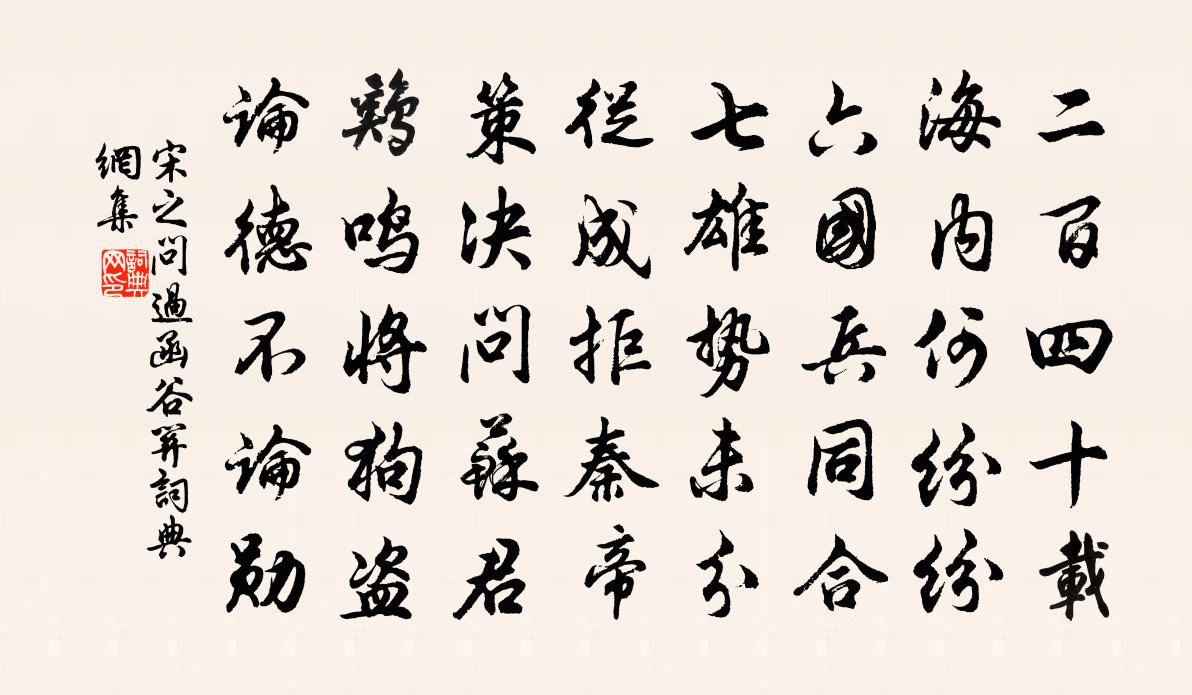 二百四十載
海内何紛紛
六國兵同合
七雄势未分
從成拒秦帝
策决問蘇君
鷄鸣將狗盗
論德不論勋
宋之問過函谷關詞典
網集
詞典
网印